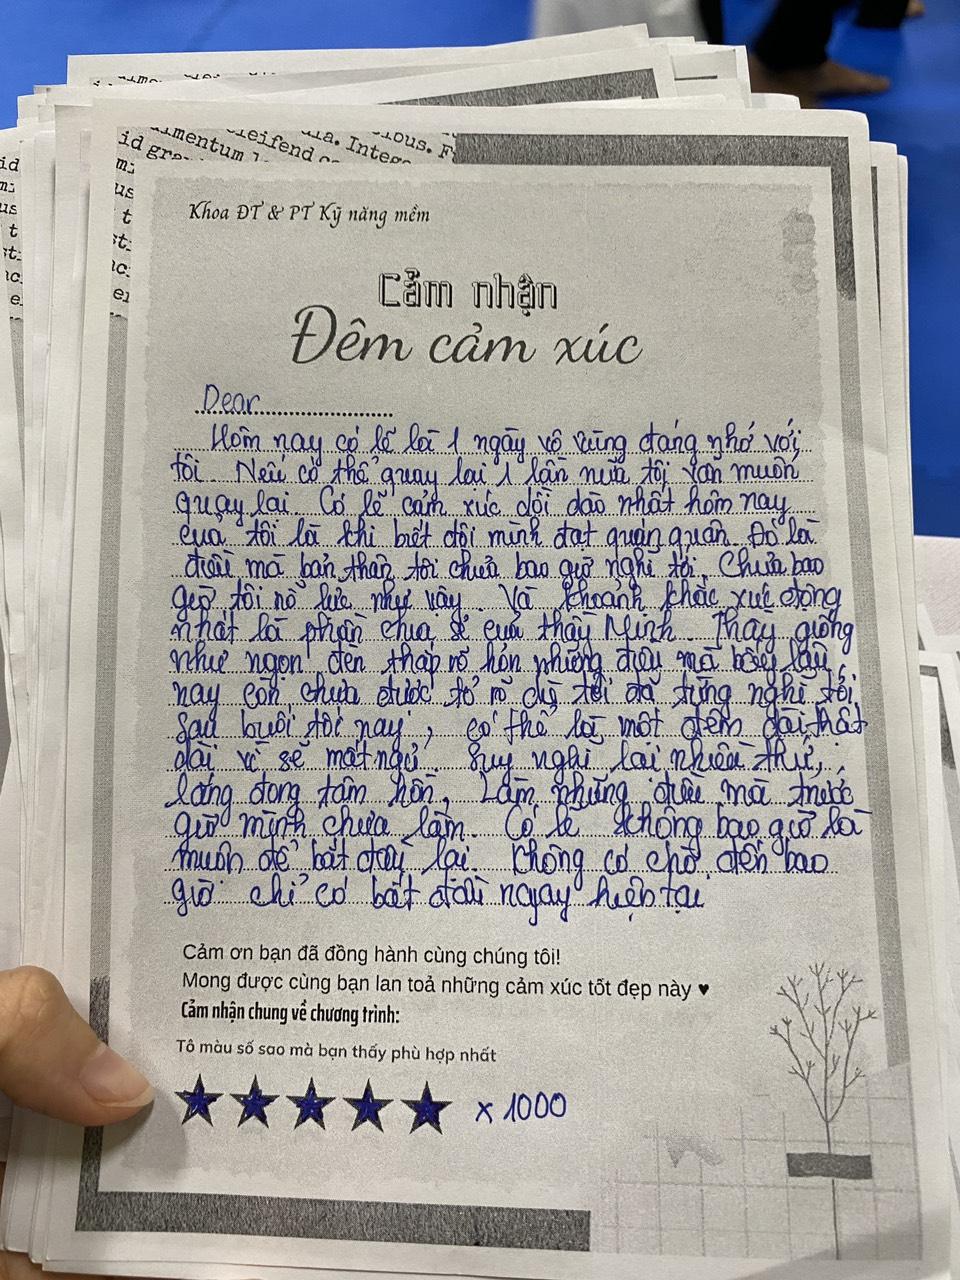 Khoa ĐT & PT Kỹ năng mềm
Cảm nhận
Đêm cảm xúc
Dear
Hôm nay có lẽ là 1 ngày vô cùng đáng nhớ với
tôi. Nếu có thể quay lại 1 lần nữa tôi vẫn muốn
quay lại. Có lẽ cảm xúc dồi dào nhất hôm nay
của tôi là khi biết đội mình đạt quán quân. Đó là
điều mà bản thân tôi chưa bao giờ nghĩ tới. Chưa bao
giờ tôi nỗ lực như vậy. Và khoảnh khắc xúc động
nhất là phần chia sẻ của thầy Minh. Thầy giống
như ngọn đèn thắp rõ hơn những điều mà bấy lâu
nay còn chưa được tỏ rõ dù tôi đã từng nghĩ tới
Sau buổi tối nay, có thể là một đêm dài thật
dài vì sẽ mất ngủ. Suy nghĩ lại nhiều thứ,
lắng đọng tâm hồn, Làm những điều mà trước
giờ mình chưa làm. Có lẽ không bao giờ là
muộn để bắt đầu lại. Không có chờ đến bao
giờ chỉ có bắt đầu ngay hiện tại
Cảm ơn bạn đã đồng hành cùng chúng tôi!
Mong được cùng bạn lan toả những cảm xúc tốt đẹp này ♥
Cảm nhận chung về chương trình:
Tô màu số sao mà bạn thấy phù hợp nhất
x 1000